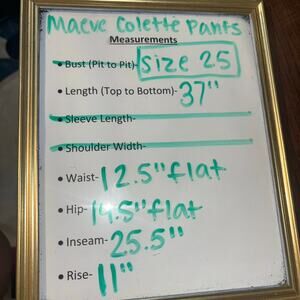 Maeve Colette Pants
Measurements
• Bust (Pit to Pit)- Size 25
• Length (Top to Bottom)- 37"
• Sleeve Length-
• Shoulder Width-
• Waist- 12.5" flat
• Hip- 19.5" flat
• Inseam- 25.5"
• Rise- 11"